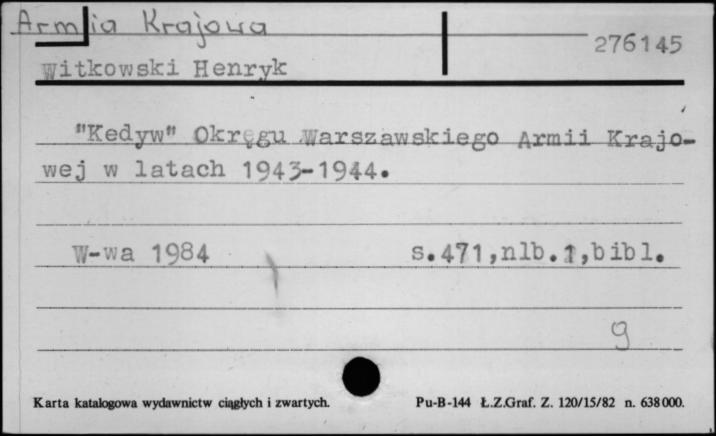 Armia Krajowa
276145
Witkowski Henryk
"Kedyw" Okręgu Warszawskiego Armii Krajo-
wej w latach 1943-1944.
W-wa 1984 s.471,nlb.1,bibl.
g
Karta katalogowa wydawnictw ciągłych i zwartych. Pu-B-144 Ł.Z.Graf. Z. 120/15/82 n. 638000.